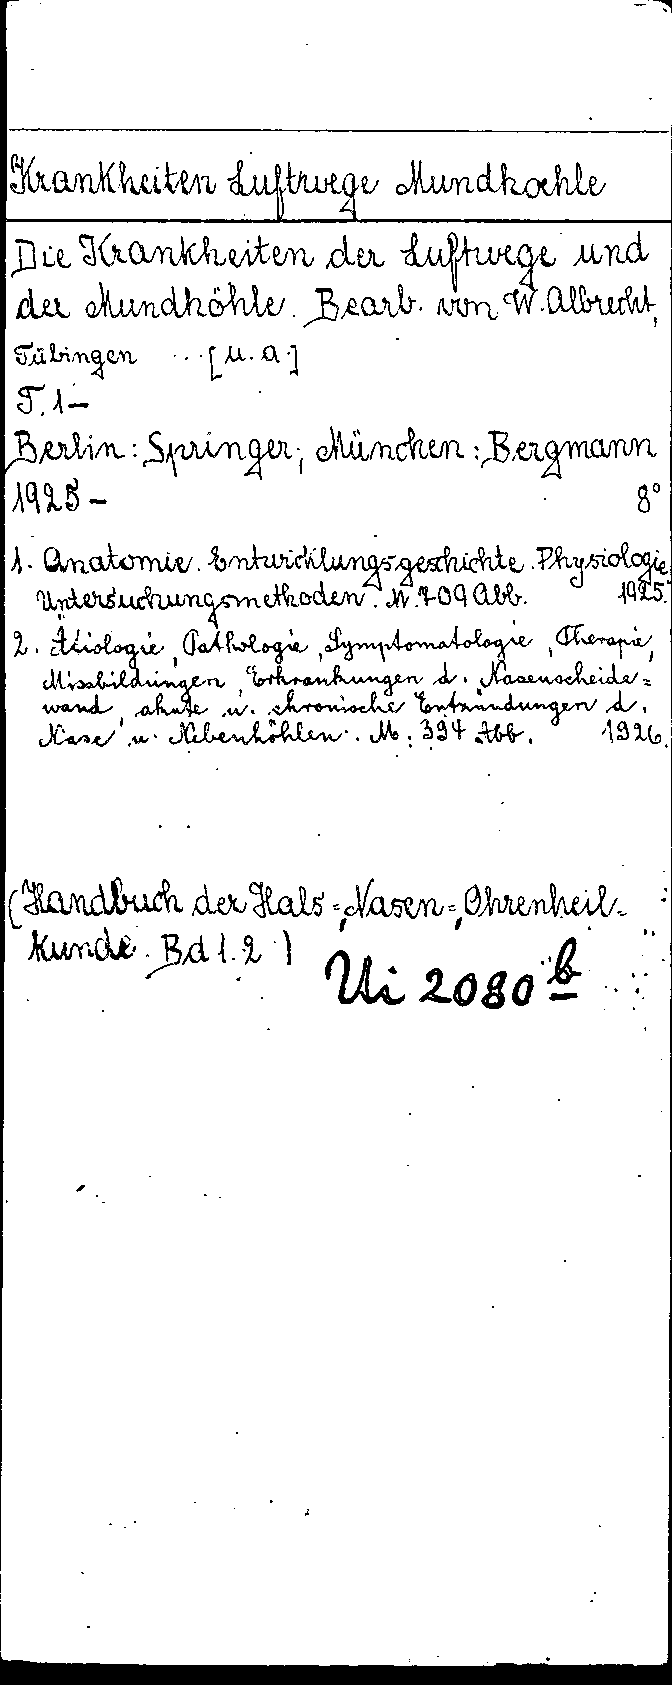 Krankheiten Luftwege Mundhoehle
Die Krankheiten der Luftwege und
der Mundhöhle. Bearb. von W. Albrecht,
Tübingen ... [u. a.]
T. 1–
Berlin: Springer; München: Bergmann
1925– 8°
1. Anatomie. Entwicklungsgeschichte. Physiologie.
Untersuchungsmethoden. M. 709 Abb. 1925.
2. Ätiologie, Pathologie, Symptomatologie, Therapie,
Missbildungen, Erkrankungen d. Nasenscheide=
wand, akute u. chronische Entzündungen d.
Nase u. Nebenhöhlen. M. 394 Abb. 1926.
(Handbuch der Hals=, Nasen=, Ohrenheil=
kunde. Bd 1. 2)
Ui 2080 b